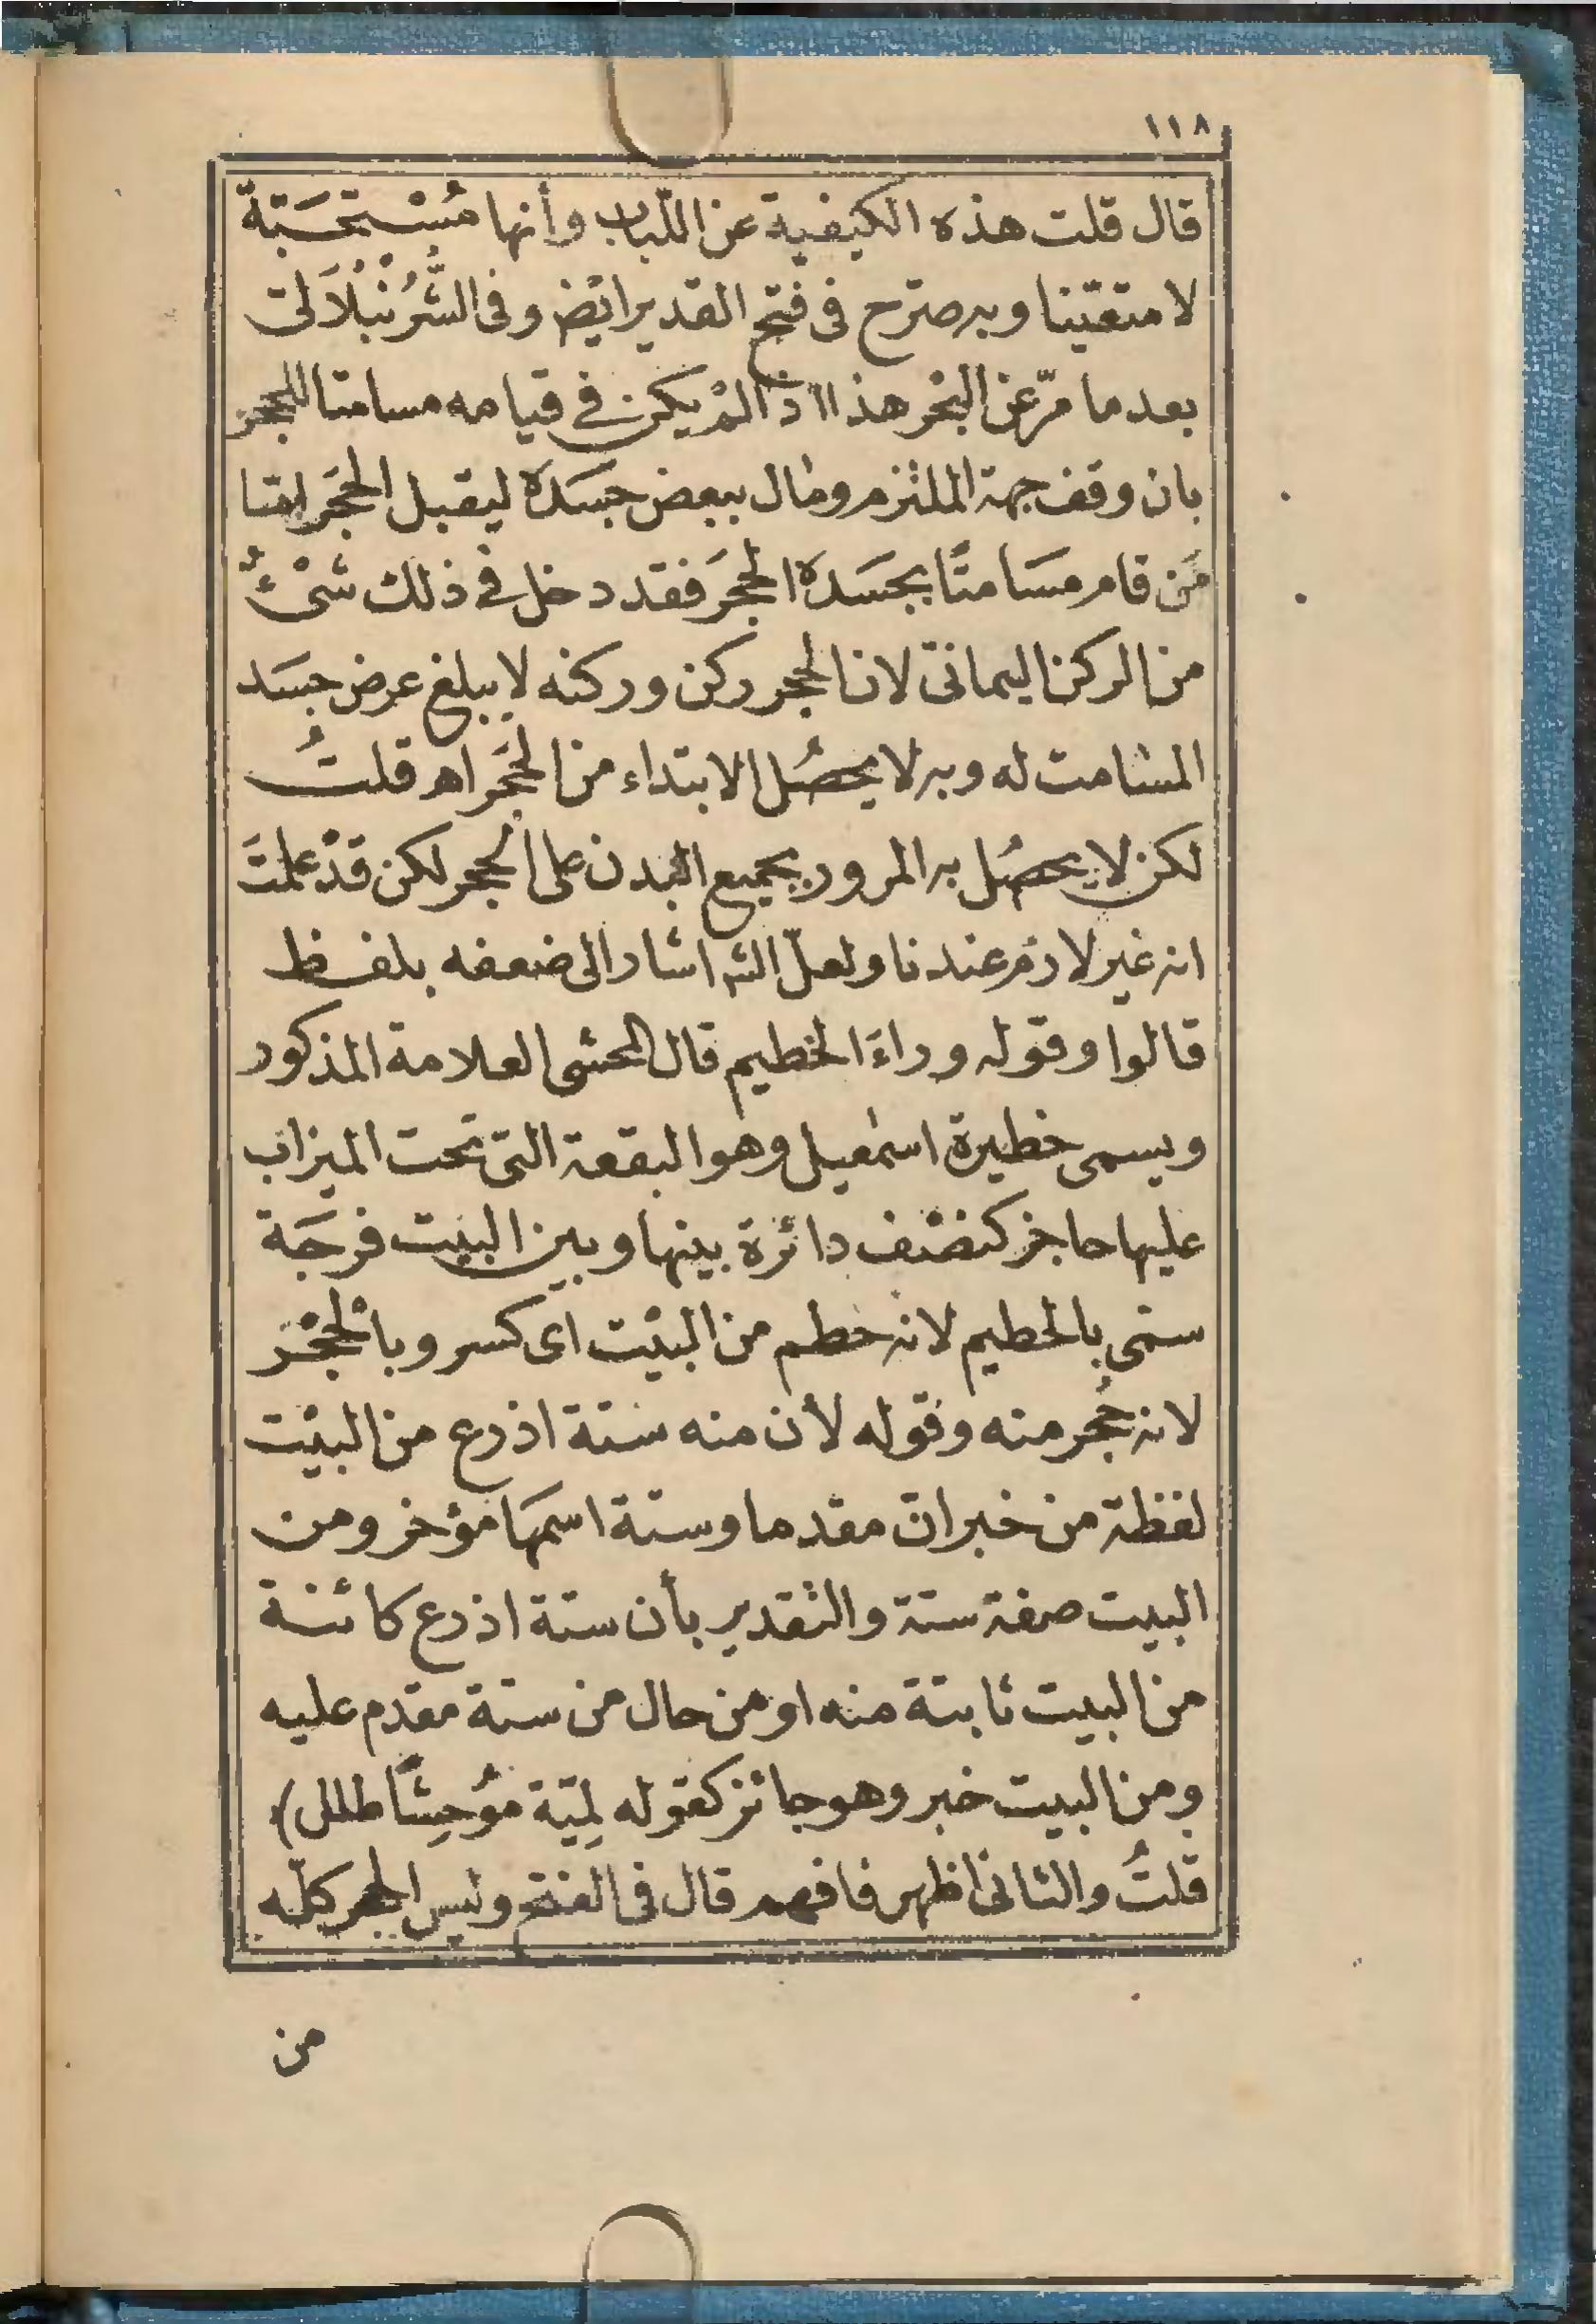 ١١٨
قال قلت هذه الكيفية عن اللباب وأنها مُسْتَحَبَّة
لا متعيّنا وبه صرّح فى فتح القدير ايض وفى الشُّرُنْبُلَالىّ
بعد ما مرّ عن البحر هذا اذا لم يكن فى قيامه مسامتا للحجر
بان وقف جهة الملتزم ومال ببعض جسَده ليقبل الحجَر امّا
مَن قام مسَامتًا بجسَده الحجَر فقد دخل فى ذلك شىْءٌ
من الركن اليمانىّ لان الحجر ركن وركنه لا يبلغ عرض جسَد
المسامت له وبه لا يحصُل الابتداء من الحَجَر اهـ قلتُ
لكن لا يحصُل به المرور بجميع البدن على الحجر لكن قدْ علمتَ
انه غير لازم عندنا ولعلّ الشه اشار الى ضعفه بلفظ
قالوا وقوله وراءَ الحطيم قال المحشى العلامة المذكور
ويسمى حظيرة اسمٰعيل وهو البقعة التى تحت الميزاب
عليها حاجز كنصْف دائرة بينها وبين البيت فرجَة
سمّى بالحطيم لانه حطم من البيْت اى كسر وبالْحِجْر
لانه حُجر منه وقوله لأن منه ستة اذرع من البيْت
لفظة من خبر انّ مقدما وستة اسمهَا مؤخر ومن
البيت صفة ستة والتقدير بأن ستة اذرع كائنة
من البيت ثابتة منه او من حال من ستة مقدم عليه
ومن البيت خبر وهو جائز كقوله لِميّة مُوحِشًا طلل)
قلتُ والثانى اظهر فافهم قال فى الفتح وليس الحجر كلّه
من